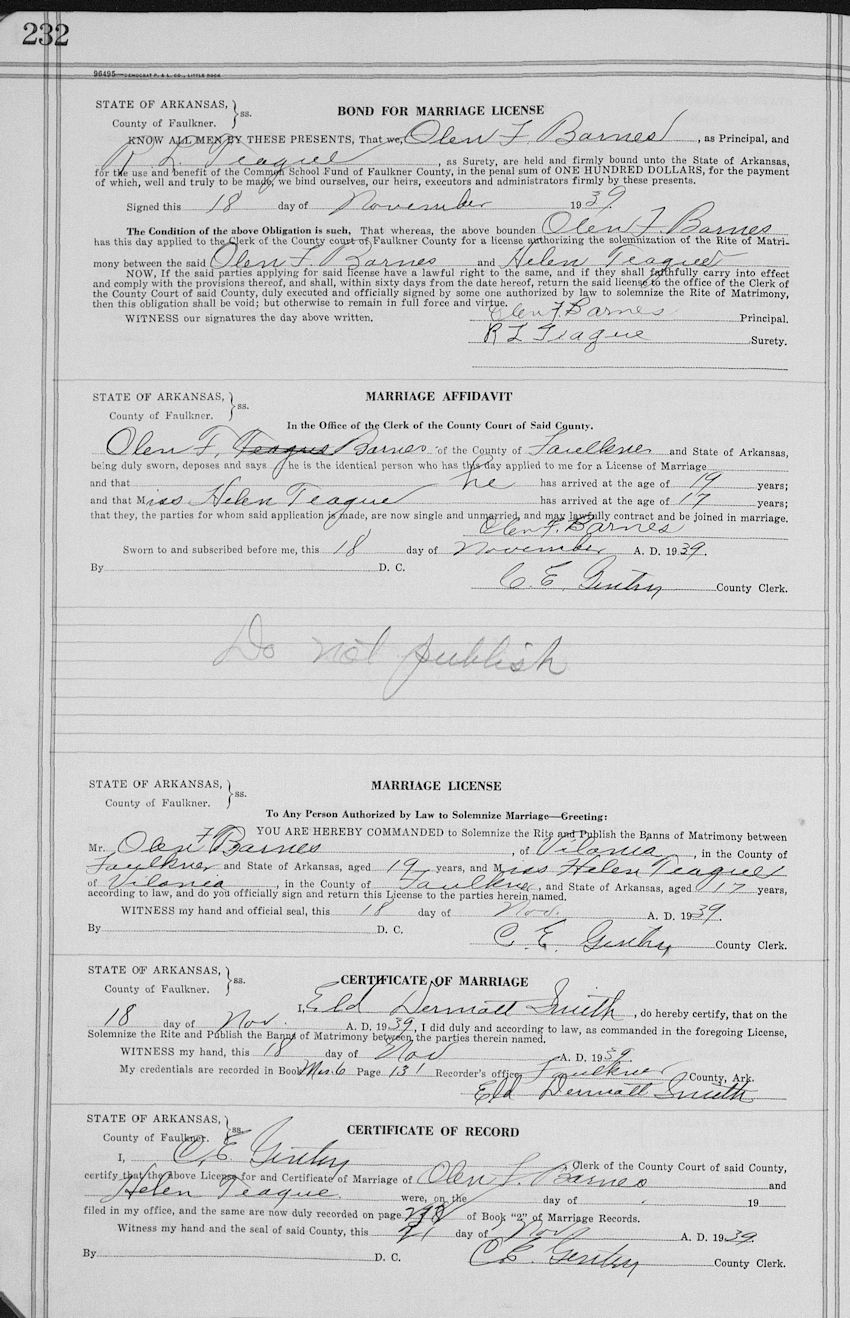 232
96495—DEMOCRAT P. & L. CO., LITTLE ROCK
STATE OF ARKANSAS,
County of Faulkner. ss.
BOND FOR MARRIAGE LICENSE
KNOW ALL MEN BY THESE PRESENTS, That we, Olen F. Barnes, as Principal, and
R. L. Teague, as Surety, are held and firmly bound unto the State of Arkansas,
for the use and benefit of the Common School Fund of Faulkner County, in the penal sum of ONE HUNDRED DOLLARS, for the payment
of which, well and truly to be made, we bind ourselves, our heirs, executors and administrators firmly by these presents.
Signed this 18 day of November 1939.
The Condition of the above Obligation is such, That whereas, the above bounden Olen F. Barnes
has this day applied to the Clerk of the County court of Faulkner County for a license authorizing the solemnization of the Rite of Matri-
mony between the said Olen F. Barnes and Helen Teague
NOW, If the said parties applying for said license have a lawful right to the same, and if they shall faithfully carry into effect
and comply with the provisions thereof, and shall, within sixty days from the date hereof, return the said license to the office of the Clerk of
the County Court of said County, duly executed and officially signed by some one authorized by law to solemnize the Rite of Matrimony,
then this obligation shall be void; but otherwise to remain in full force and virtue.
WITNESS our signatures the day above written. Olen F. Barnes Principal.
R L Teague Surety.
STATE OF ARKANSAS,
County of Faulkner. ss.
MARRIAGE AFFIDAVIT
In the Office of the Clerk of the County Court of Said County.
Olen F. Teague Barnes of the County of Faulkner and State of Arkansas,
being duly sworn, deposes and says he is the identical person who has this day applied to me for a License of Marriage
and that he has arrived at the age of 19 years;
and that Miss Helen Teague has arrived at the age of 17 years;
that they, the parties for whom said application is made, are now single and unmarried, and may lawfully contract and be joined in marriage.
Olen F. Barnes
Sworn to and subscribed before me, this 18 day of November A. D. 1939.
By D. C.
C. E. Gentry County Clerk.
Do not publish
STATE OF ARKANSAS,
County of Faulkner. ss.
MARRIAGE LICENSE
To Any Person Authorized by Law to Solemnize Marriage—Greeting:
YOU ARE HEREBY COMMANDED to Solemnize the Rite and Publish the Banns of Matrimony between
Mr. Olen F Barnes, of Vilonia, in the County of
Faulkner and State of Arkansas, aged 19 years, and Miss Helen Teague
of Vilonia, in the County of Faulkner, and State of Arkansas, aged 17 years,
according to law, and do you officially sign and return this License to the parties herein named.
WITNESS my hand and official seal, this 18 day of Nov. A. D. 1939.
By D. C.
C. E. Gentry County Clerk.
STATE OF ARKANSAS,
County of Faulkner. ss.
CERTIFICATE OF MARRIAGE
I, Eld Dermott Smith, do hereby certify, that on the
18 day of Nov. A. D. 1939, I did duly and according to law, as commanded in the foregoing License,
Solemnize the Rite and Publish the Banns of Matrimony between the parties therein named.
WITNESS my hand, this 18 day of Nov A. D. 1939.
My credentials are recorded in Book 6 Page 131 Recorder's office Faulkner County, Ark.
Eld Dermott Smith
STATE OF ARKANSAS,
County of Faulkner. ss.
CERTIFICATE OF RECORD
I, C. E Gentry Clerk of the County Court of said County,
certify that the above License for and Certificate of Marriage of Olen F. Barnes and
Helen Teague were, on the day of 19
filed in my office, and the same are now duly recorded on page of Book "2" of Marriage Records.
Witness my hand and the seal of said County, this 21 day of Nov A. D. 1939.
By D. C.
C. E. Gentry County Clerk.